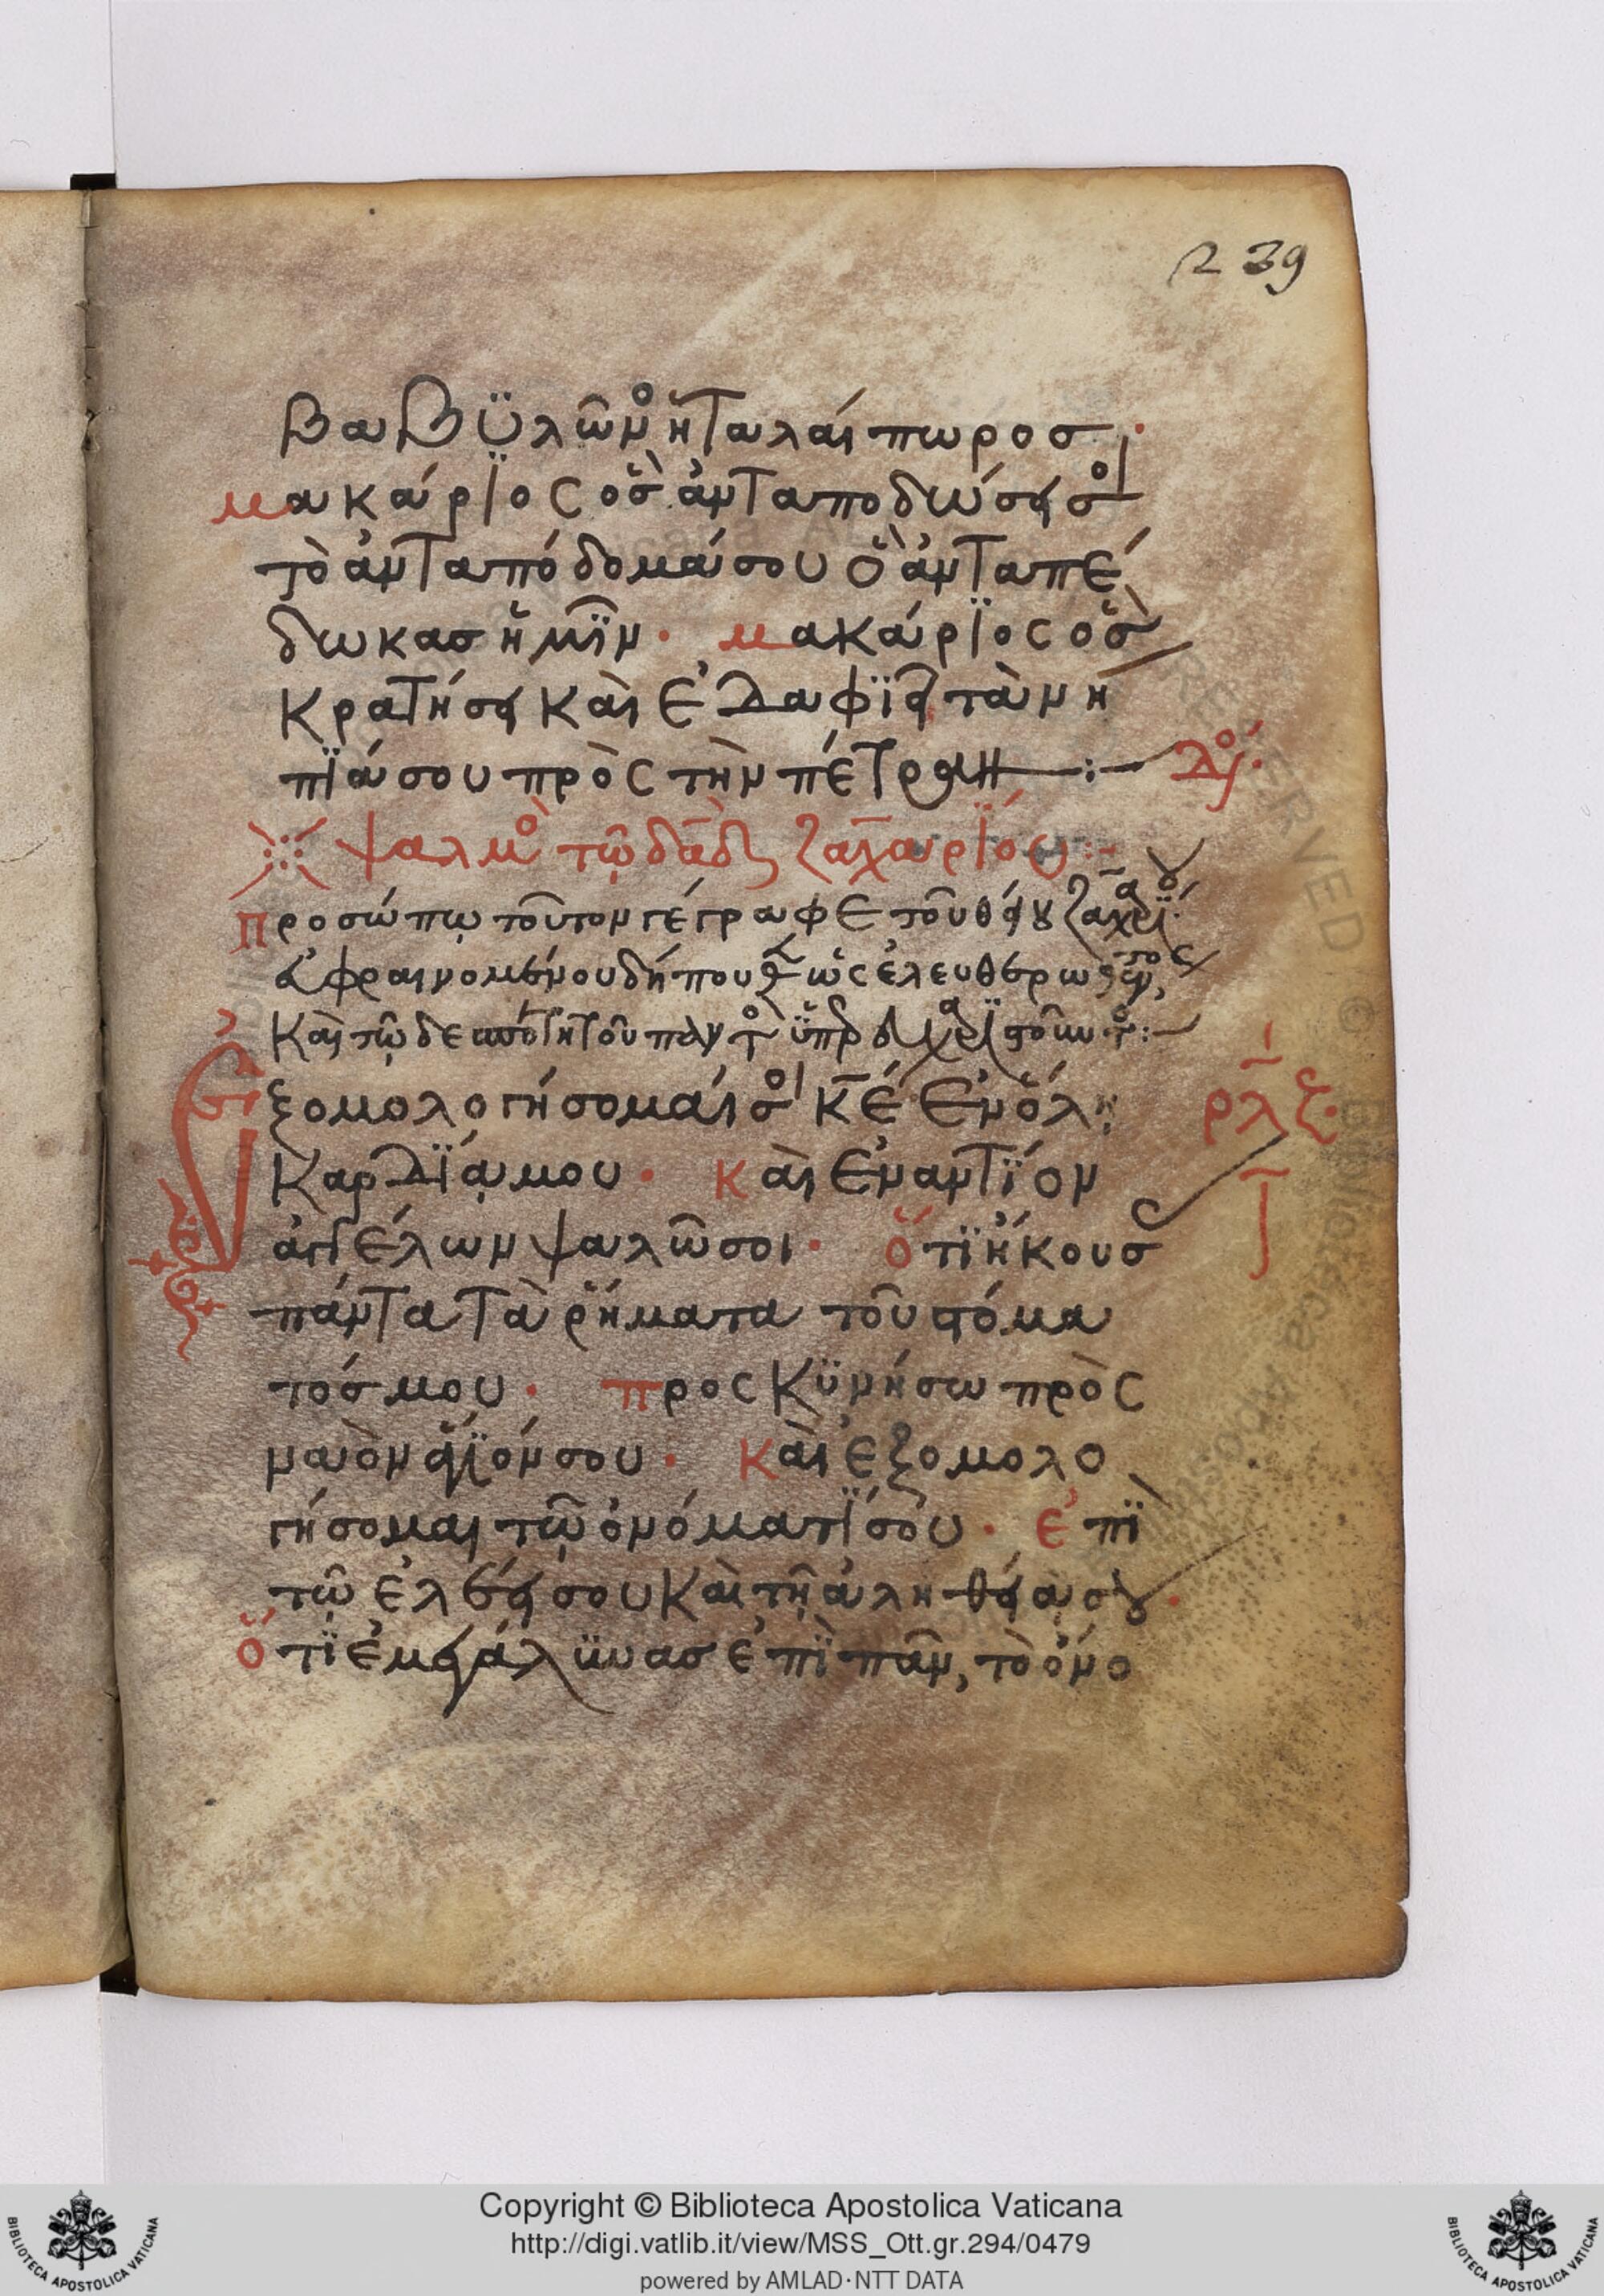 239
βαβϋλῶν ἡ ταλαίπωρος·
μακάριος ὃς ἀνταποδώσει σοι
τὸ ἀνταπόδομά σου ὃ ἀνταπέ
δωκας ἡμῖν· μακάριος ὃς
κρατήσει καὶ ἐδαφιεῖ τὰ νή
πϊά σου πρὸς τὴν πέτραν :–
ψαλμὸς τῷ δᾱδ ζαχαρίου :–
προσώπω τοῦτον γέγραφε τοῦ θείου
ἐξομολογήσομαί σοι κ̅ε̅ ἐν ὅλῃ
ρλζ
καρδίᾳ μου· καὶ ἐναντίον
ἀγγέλων ψαλῶ σοι· ὅτι ἤκουσ
πάντα τὰ ῥήματα τοῦ στόμα
τός μου· προσκϋνήσω πρὸς
ναὸν ἅγϊόν σου· καὶ ἐξομολο
γήσομαι τῷ ὀνόματί σου· ἐπὶ
τῷ ἐλέει σου καὶ τῇ ἀληθείᾳ σου·
ὅτι ἐμεγάλϋνας ἐπὶ πᾶν, τὸ ὄνο
Copyright © Biblioteca Apostolica Vaticana
http://digi.vatlib.it/view/MSS_Ott.gr.294/0479
powered by AMLAD·NTT DATA
BIBLIOTECA APOSTOLICA VATICANA
BIBLIOTECA APOSTOLICA VATICANA